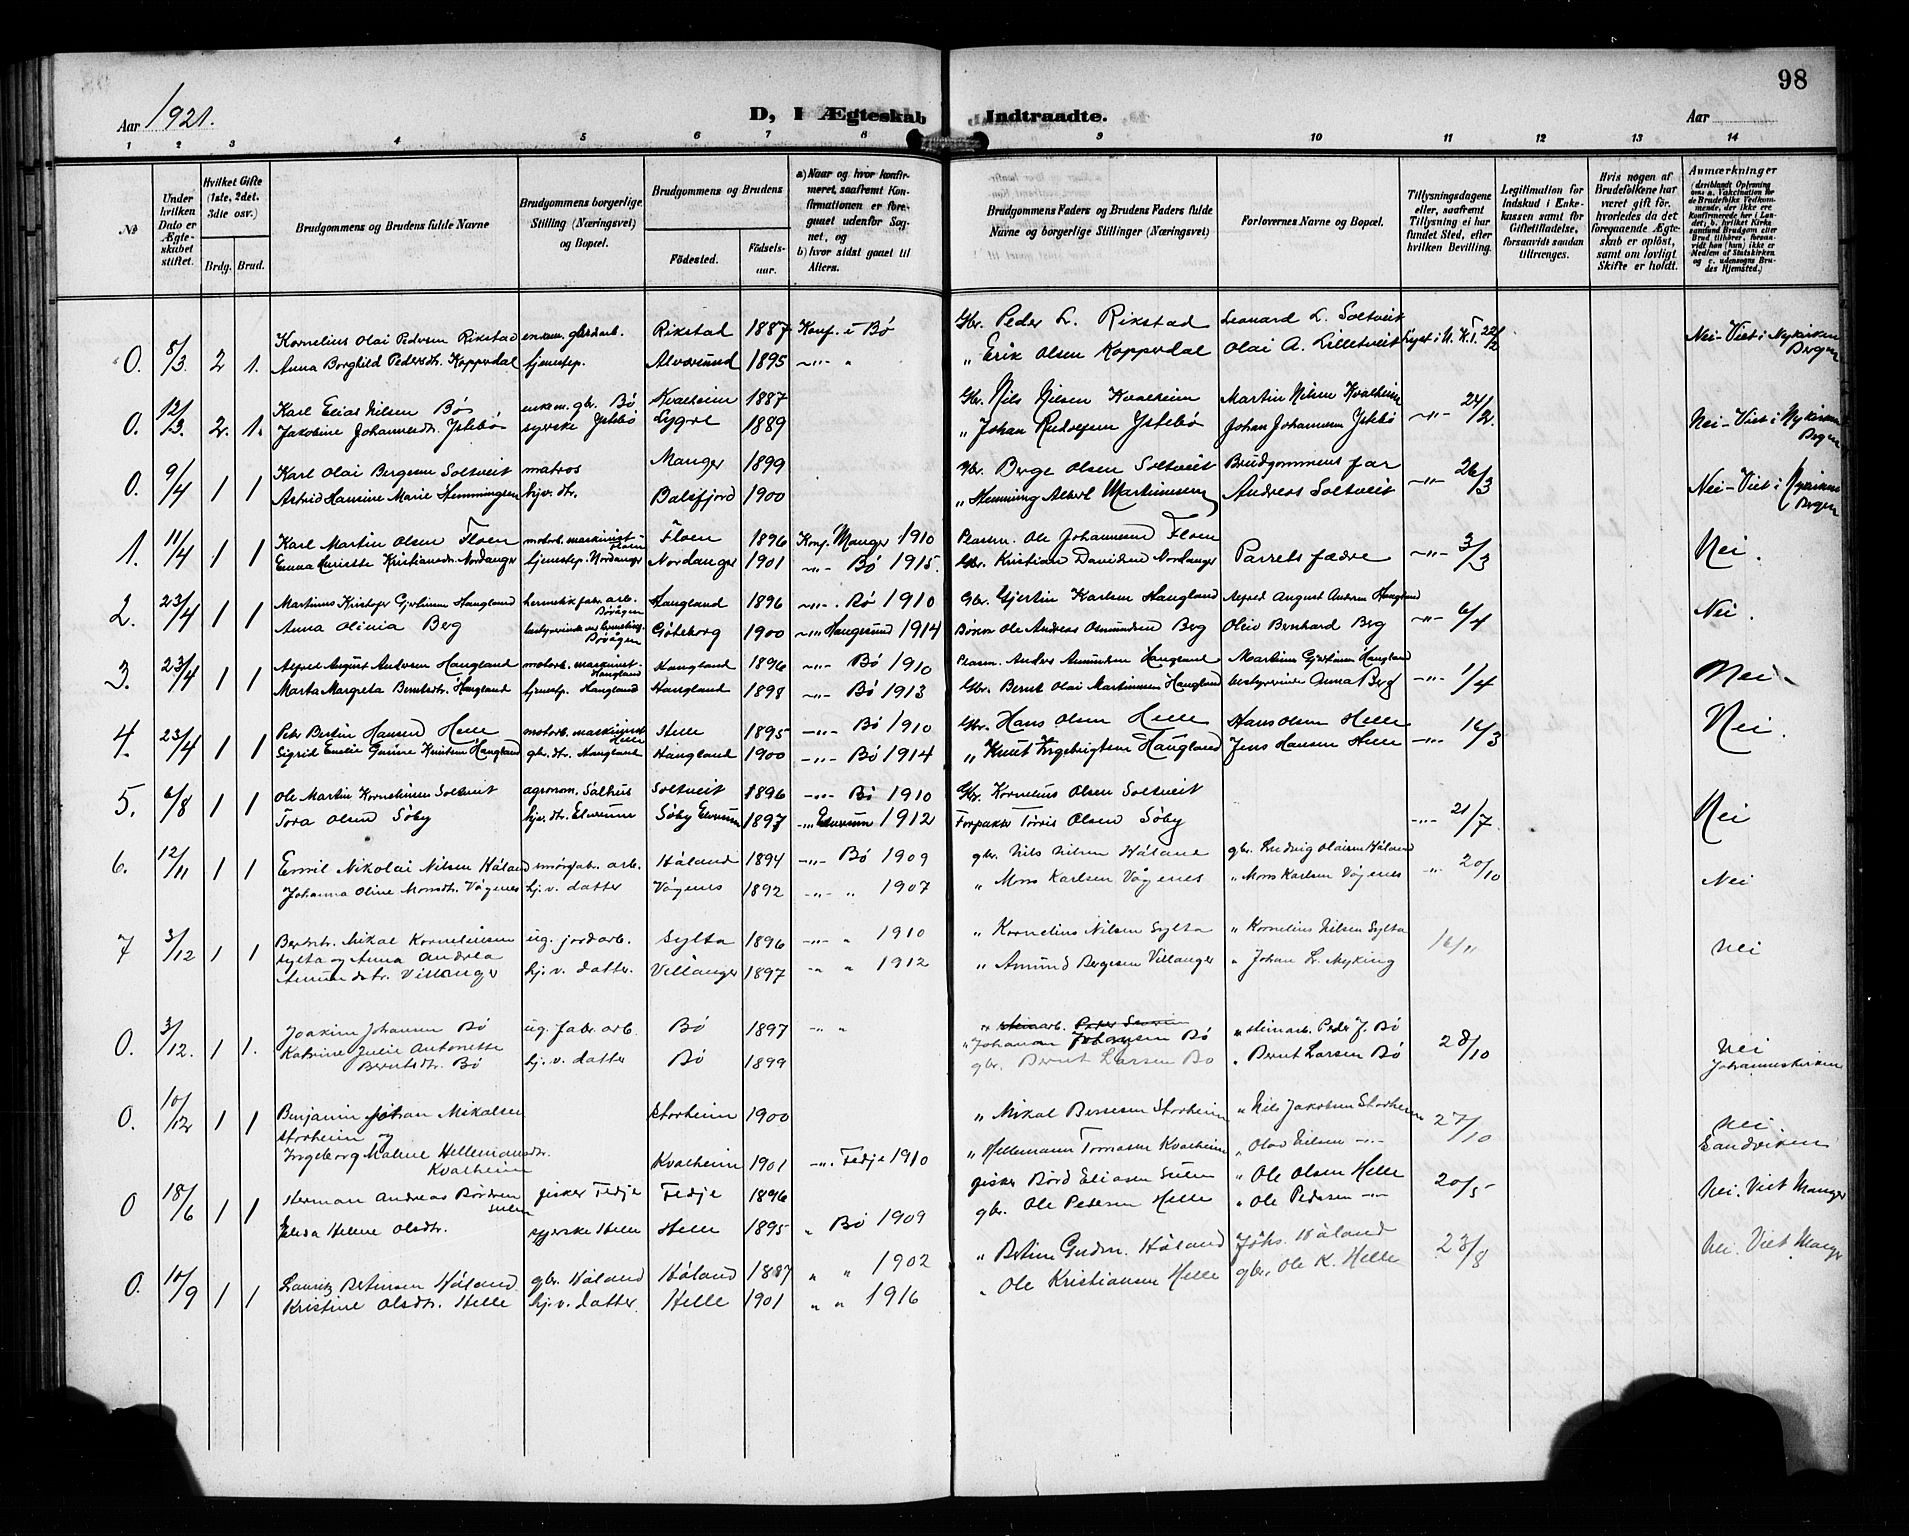 98
Aar 1921.
D, I Ægteskab Indtraadte.
Aar
1 2 3 4 5 6 7 8 9 10 11 12 13 14
No
Under hvilken Dato er Ægteskabet stiftet.
Hvilket Gifte (1ste, 2det. 3die osv.)
Brdg. Brud.
Brudgommens og Brudens fulde Navne
Brudgommens borgerlige Stilling (Næringsvei) og Bopæl.
Brudgommens og Brudens
Födested. Födselsaar.
a) Naar og hvor konfirmeret, saafremt Konfirmationen er foregaaet udenfor Sognet, og
b) hvor sidst gaaet til Alters.
Brudgommens Faders og Brudens Faders fulde Navne og borgerlige Stillinger (Næringsvei)
Forlovernes Navne og Bopæl.
Tillysningsdagene eller, saafremt Tillysning ei har fundet Sted, efter hvilken Bevilling.
Legitimation for Indskud i Enkekassen samt for Giftetilladelse, forsaavidt saadan tiltrænges.
Hvis nogen af Brudefolkene har været gift för, hvorledes da det foregaaende Ægteskab er oplöst, samt om lovligt Skifte er holdt.
Anmærkninger
0. 8/3 2 1. Kornelius Olai Pedersen Rikstad enkem. gardarb. Rikstad 1887 Konf. i Bø Gbr. Peder L. Rikstad Leonard L. Soltveit 22/2 Nei - Viet i Nykirken
Anna Borghild Pedersdtr. Kopperdal tjenestep. Alversund 1895 -"- " " Erik Olsen Kopperdal Olai A. Lilletveit Bergen
0. 12/3. 2. 1. Karl Elias Nilsen Bø enkem. gbr. Bø Kvalheim 1887 Gbr. Nils Nilsen Kvalheim Martin Nilsen Kvalheim -"- 24/2. Nei - Viet i Nykirken
Jakobine Johannesdtr. Ystebø syerske Ystebø Lygre 1889 " Johan Rudolfsen Ystebø Johan Johannesen Ystebø Bergen
0. 9/4 1 1 Karl Olai Bergesen Soltveit matros Manger 1899 Gbr. Berge Olsen Soltveit Brudgommens far -"- 26/3 Nei - Viet i Nykirken
Astrid Hansine Marie Hemmingsen hjv. dtr. Balsfjord 1900 " Hemming Albert Martinussen Andreas Soltveit Bergen
1. 11/4 1 1 Karl Martin Olsen Floen motorb. maskinist Floen Floen 1896 Konf. Manger 1910 Plassm. Ole Johannesen Floen -"- 3/3 Nei.
Emma Kristianesdtr. Nordanger tjenestep. Nordanger Nordanger 1901 -"- Bø 1915. Gbr. Kristian Davidsen Nordanger Parrets fædre
2. 23/4 1 1 Martinus Kristofer Gjertinsen Haugland hermetikfabr. arb. Bøvågen Haugland 1896 -"- . Bø 1910 Gbr. Gjertin Karlsen Haugland Alfred August Andersen Haugland -"- 6/4 Nei.
Anna Olinia Berg bestyrerinde Bøvågen Göteborg 1900 -"- Haugesund 1914 Ole Andreas Osmundsen Berg Oleiv Bernhard Berg
3. 23/4 1 1 Alfred August Andersen Haugland motorb. maskinist Haugland Haugland 1896 -"- Bø 1910 Plassm. Anders Amundsen Haugland Martinus Gjertinsen Haugland -"- 1/4 Nei.
Marta Margreta Berntsdtr. Haugland tjenestp. Haugland Haugland 1898 -"- Bø 1913 Gbr. Bernt Olai Martinussen Haugland bestyrerinde Anna Berg
4. 23/4 1 1 Peter Bertin Hansen Helle motorb. maskinist Helle Helle 1895 -"- Bø 1910 Gbr. Hans Olsen Helle Hans Olsen Helle -"- 16/3 Nei.
Sigrid Emelie Gurine Knutsen Haugland gbr. dtr. Haugland Haugland 1900 -"- Bø 1914 " Knut Ingebrigtsen Haugland Jens Hansen Helle
5. 6/8 1 1 Ole Martin Korneliussen Soltveit agronom. Salhus Soltveit 1896 -"- Bø 1910 Gbr. Kornelius Olsen Soltveit -"- 21/7 Nei
Tora Olsen Søby hjv. dtr. Elverum Søby Elverum 1897 -"- Elverum 1912 Forpakter Torris Olsen Søby
6. 12/11 1 1 Emil Nikolai Nilsen Håland smørfab. arb. Håland 1894 -"- Bø 1909 gbr. Nils Nilsen Håland gbr. Ludvig Olaisen Håland -"- 20/10 Nei
Johanna Oline Monsdtr. Vågenes hj. v. datter Vågenes 1892 -"- " 1907 " Mons Karlsen Vågenes " Mons Karlsen Vågenes
7 3/12 1 1 Mikal Korneliussen ug. jordarb. Sylta 1896 -"- " 1910 " Kornelius Nilsen Sylta " Kornelius Nilsen Sylta 16/11 Nei
Sylta og Anna Andrea
Amundsdtr. Villanger hj. v. datter. Villanger 1897 " " 1912 " Amund Bergesen Villanger " Johan L. Myking
0. 3/12. 1 1. Joakim Johansen Bø ug. fabr. arb. Bø 1897 -"- " steinarb. " steinarb. Peder J. Bø 28/10 Nei
Katrine Julie Antonette " Johannes Johansen Bø Johanneskirken
Berntsdtr. Bø hj. v. datter Bø 1899 gbr. Bernt Larsen Bø " Bernt Larsen Bø
0. 10/12 1 1 Benjamin Johan Mikalsen Storheim 1900 " Mikal Storheim " Nils Jakobsen Storheim 27/10 Nei
Storheim og Sandviken
Ingeborg Malene Hellemansdtr. Kvalheim Kvalheim 1901 -"- Fedje 1910 " Hellemann Tomassen Kvalheim " Olav Nilsen -"-
0 18/6 1 1 Herman Andreas Bårdsen Sulen fisker Fedje Fedje 1896 fisker Bård Eliassen Sulen " Ole Olsen Helle 20/5 Nei. Viet Manger
Helene Olsdtr. syerske Helle Helle 1895 " Bø 1909 gbr. Ole Petersen Helle " Ole Pedersen -"-
0. 10/9 1 1 Lauritz Bertinsen Håland gbr. Håland Håland 1887 " " 1902 " Bertin Håland Johs. Håland 23/8 Nei. Viet Manger
Kristine Olsdtr. Helle hj. v. datter Helle 1901 " " 1916 " Ole Kristiansen Helle gbr. Ole K. Helle